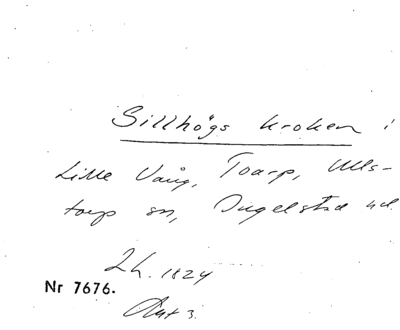 Sillhögs kroken i
Lille Vång, Toarp, Ulls-
torp sn, Ingelstad hd.
Lh. 1824
Nr 7676.
Akt 3.